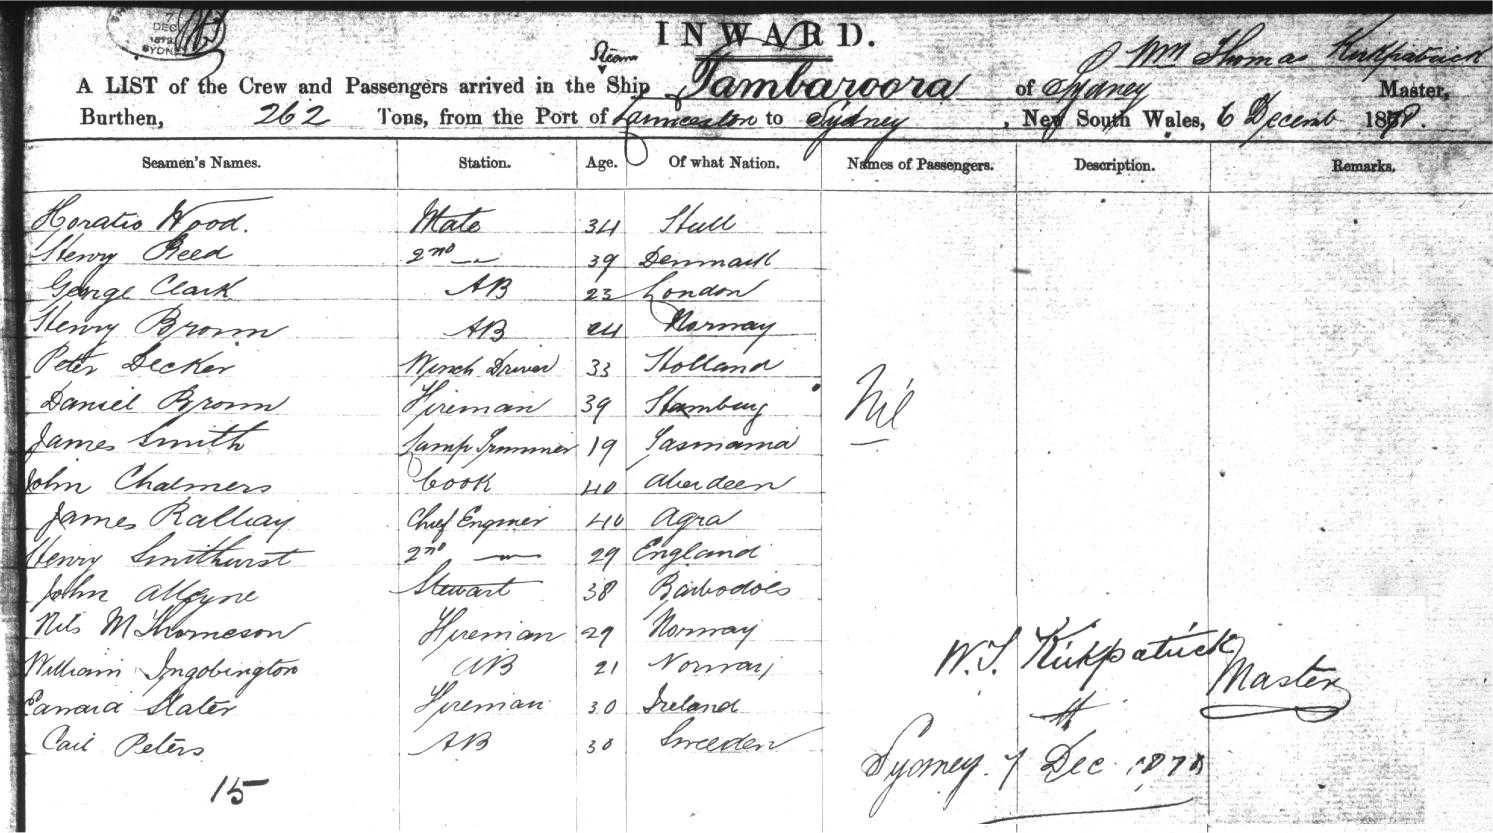 7
DEC
1878
SYDNEY
INWARD.
Steam
Wm Thomas Kirkpatrick
A LIST of the Crew and Passengers arrived in the Ship Tambaroora of Sydney Master,
Burthen, 262 Tons, from the Port of Launceston to Sydney, New South Wales, 6 Decemb 1878.
Seamen's Names. Station. Age. Of what Nation. Names of Passengers. Description. Remarks.
Horatio Wood. Mate 34 Hull
Henry Reed 2nd — 39 Denmark
George Clark AB 23 London
Henry Brown AB 24 Norway
Peter Decker Winch Driver 33 Holland
Daniel Brown Fireman 39 Hamburg
Nil
James Smith Lamp Trimmer 19 Tasmania
John Chalmers Cook 40 Aberdeen
James Chief Engineer 40 Agra
Henry Smithurst 2nd — 29 England
John Alleyne Stewart 38 Barbodoes
Nils M Thomeson Fireman 29 Norway
William Ingobington AB 21 Norway
Edward Slater Fireman 30 Ireland
Carl Peters AB 30 Sweeden
15
W. T. Kirkpatrick
Master
Sydney. 7 Dec. 1878